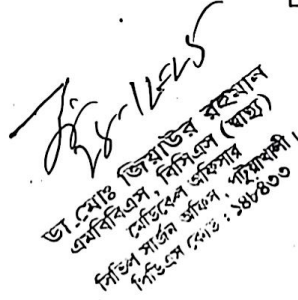 ডা. মোঃ জিয়াউর রহমান
এমবিবিএস, বিসিএস (স্বাস্থ্য)
মেডিকেল অফিসার
সিভিল সার্জন অফিস, পটুয়াখালী।
পিডিএস কোড : ১৪৮৪৩৩